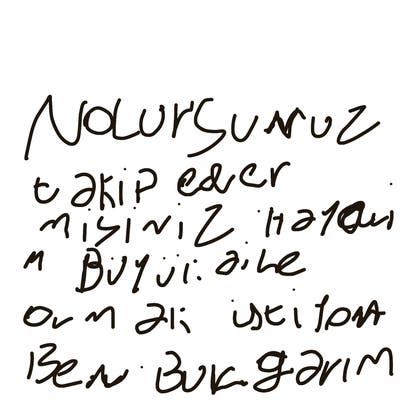 Nolursunuz
takip eder
misiniz Hayali
m Büyük aile
olmak istiyom
Ben Bulgarim